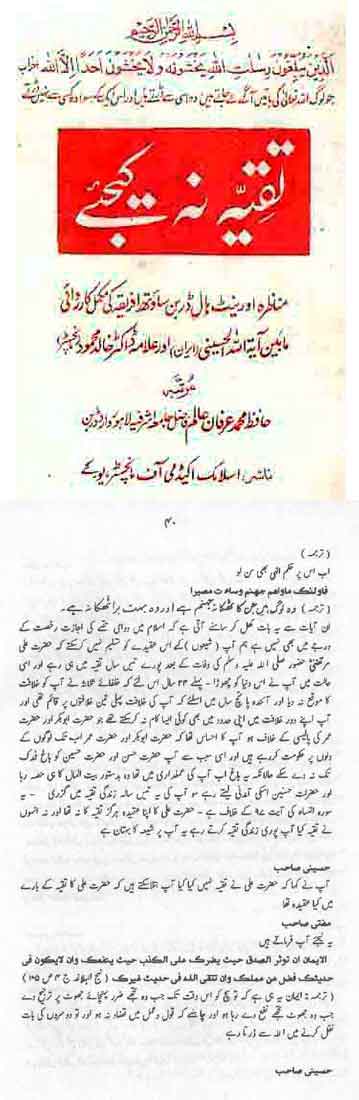 بسم اللہ الرحمن الرحیم
الَّذِیْنَ یُبَلِّغُوْنَ رِسٰلٰتِ اللّٰہِ یَخْشَوْنَہٗ وَلَا یَخْشَوْنَ اَحَدًا اِلَّا اللّٰہَ
جو لوگ اللہ تعالیٰ کی باتیں آگے لے جاتے ہیں وہ اسی سے ڈرتے ہیں اور اس کے سوا وہ کسی سے نہیں ڈرتے
تقیہ نہ کیجئے
مناظرہ اورینٹ ہال ڈربن ساؤتھ افریقہ کی مکمل کارروائی
مابین آیۃ اللہ الحسینی (ایران) اور علامہ ڈاکٹر خالد محمود (مانچسٹر)
مرتبہ
حافظ محمد عرفان عالم فاضل جامعہ اشرفیہ لاہور وارد ڈربن
ناشر: اسلامک اکیڈمی آف مانچسٹر یو کے
۴۰
(ترجمہ)
اب اس پر حکم الہی بھی سن لو
فاولئک ماواھم جھنم وساءت مصیرا
(ترجمہ) وہ لوگ ہیں جن کا ٹھکانہ جہنم ہے اور وہ بہت برا ٹھکانا ہے۔
ان آیات سے یہ بات کھل کر سامنے آتی ہے کہ اسلام میں دوامی تقیے کی اجازت رخصت کے
درجہ میں بھی نہیں ہے ہم آپ (شیعوں) کے اس عقیدے کو تسلیم نہیں کر سکتے کہ حضرت علی
مرتضیٰ حضور صلی اللہ علیہ وسلم کی وفات کے بعد پورے تیس سال تقیہ میں ہی رہے اور اسی
حالت میں آپ نے اس دنیا کو چھوڑا۔ پہلے ۲۴ سال اس لئے کہ خلفائے ثلاثہ نے آپ کو خلافت
کا موقع نہ دیا اور آئندہ پانچ سال میں اسلئے کہ آپ کی خلافت پہلی تین خلافتوں پر قائم تھی اور
آپ اپنے دور خلافت میں اپنی حدود میں بھی کوئی ایسا کام نہ کر سکتے تھے جو حضرت ابوبکر اور حضرت
عمر کی پالیسی کے خلاف ہو آپ کا احساس تھا کہ حضرت ابوبکر اور حضرت عمر اب تک لوگوں کے
دلوں پر حکومت کر رہے ہیں اور اسی سبب سے آپ حضرت حسن اور حضرت حسین کو باغ فدک
تک نہ دے سکے حالانکہ یہ باغ اب آپ کی عملداری میں تھا وہ بدستور بیت المال کا ہی حصہ رہا
اور حضرات حسنین اسکی آمدنی لیتے رہے سو آپ کی یہ تیس سالہ زندگی تقیہ میں گزری ۔ یہ
سورہ النساء کی آیت ۹۷ کے خلاف ہے۔ حضرت علی کا اپنا عقیدہ ہرگز تقیہ کا نہ تھا اور نہ انہوں
نے تقیہ کیا آپ پوری زندگی تقیہ کرتے رہے یہ آپ پر شیعہ کا بہتان ہے
حسینی صاحب
آپ نے کہا کہ حضرت علی نے تقیہ نہیں کیا کیا آپ بتلا سکتے ہیں کہ حضرت علی کا تقیہ کے بارے
میں کیا عقیدہ تھا
مفتی صاحب
یہ لیجئے آپ فرماتے ہیں
الایمان ان توثر الصدق حیث یضرک علی الکذب حیث ینفعک وان لایکون فی
حدیثک فضل عن عملک وان تتقی اللہ فی حدیث غیرک (نہج البلاغہ ج ۴ ص ۱۰۵)
(ترجمہ: ایمان یہ ہی ہے کہ تو سچ کو اس وقت تک جب وہ تجھے ضرر پہنچائے جھوٹ پر ترجیح دے
جب وہ تجھے نفع دے رہا ہو اور چاہئے کہ قول و عمل میں تضاد نہ ہو اور تو دوسروں کی بات
نقل کرنے میں اللہ سے ڈرتا رہے
حسینی صاحب